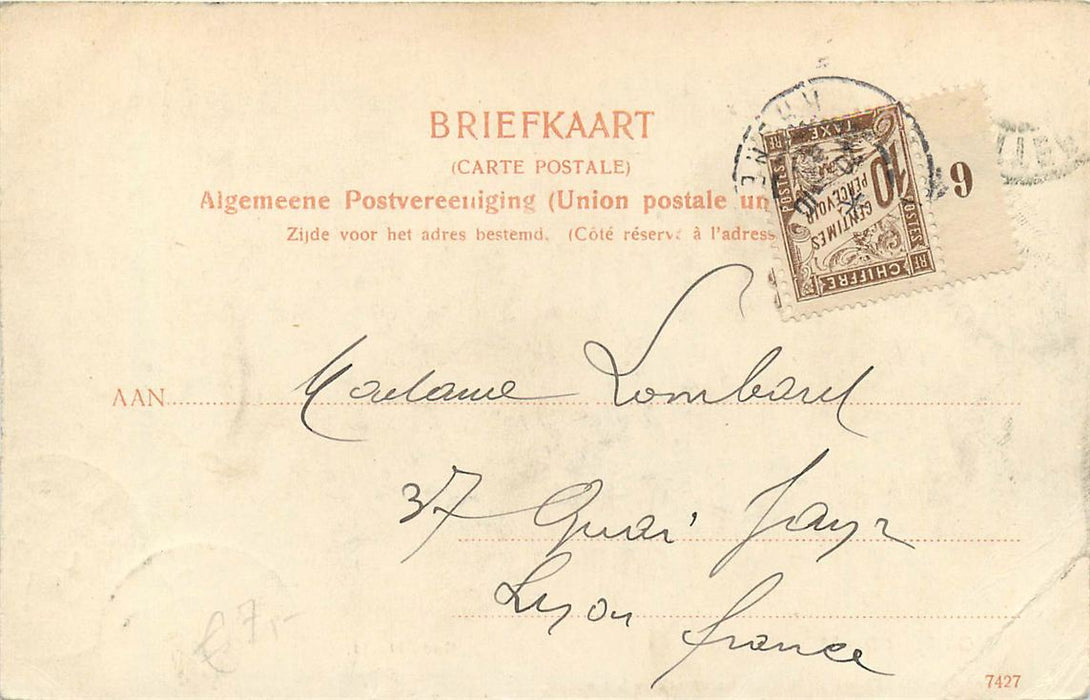 BRIEFKAART
(CARTE POSTALE)
Algemeene Postvereeniging (Union postale un
Zijde voor het adres bestemd. (Côté réservé à l'adress
CHIFFRE TAXE
10
CENTIMES
A PERCEVOIR
POSTES
RF
9
AAN
Madame Lombard
37 Quai Jayr
Lyon
france
€ 7,-
7427